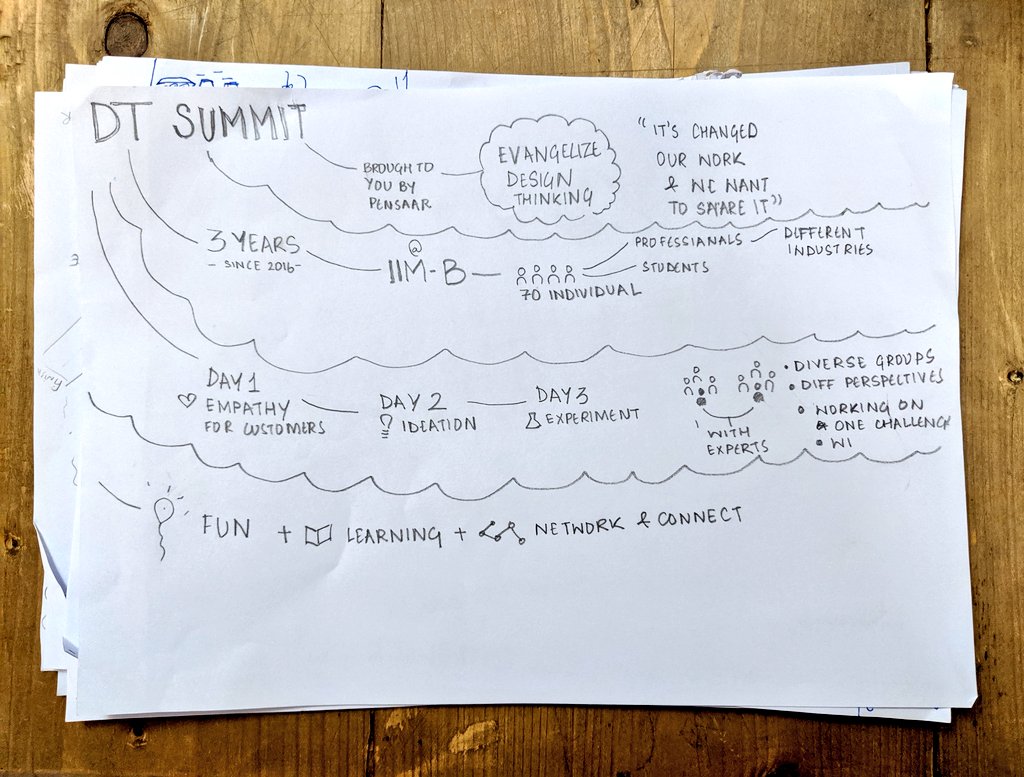 DT SUMMIT
BROUGH TO
YOU BY
PENSAAR
EVANGELIZE
DESIGN
THINKING
"IT'S CHANGED
OUR WORK
& WE WANT
TO SAARE IT"
3 YEARS
- SINCE 2016-
@
IIM-B
70 INDIVIDUAL
PROFESSIANALS
STUDENTS
DIFFERENT
INDUSTRIES
DAY 1
EMPATHY
FOR CUSTOMERS
DAY 2
IDEATION
DAY 3
EXPERIMENT
WITH
EXPERTS
• DIVERSE GROUPS
• DIFF PERSPECTIVES
• WORKING ON
ONE CHALLENGE
• WI
FUN + LEARNING + NETWORK & CONNECT